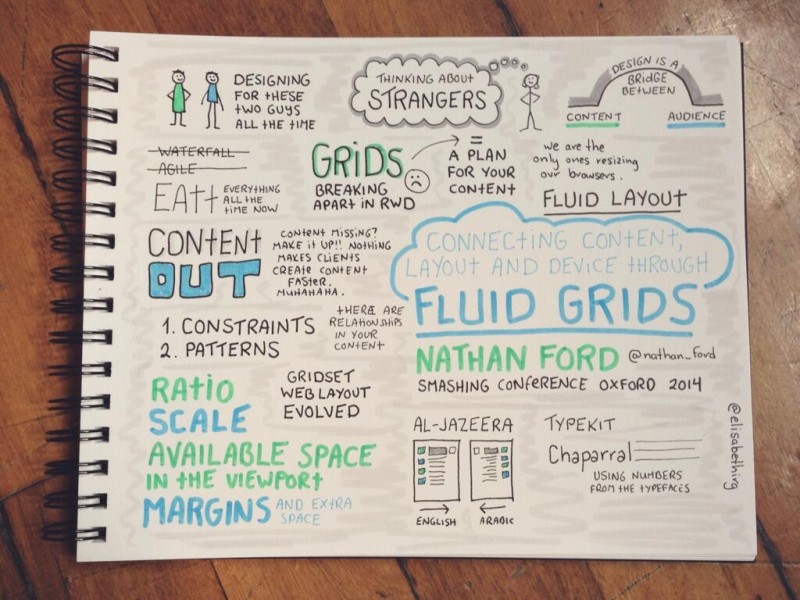 DESIGNING
FOR THESE
TWO GUYS
ALL THE TIME
THINKING ABOUT
STRANGERS
DESIGN IS A
BRIDGE
BETWEEN
CONTENT
AUDIENCE
WATERFALL
AGILE
EATT EVERYTHING
ALL THE
TIME NOW
GRIDS
BREAKING
APART IN RWD
=
A PLAN
FOR YOUR
CONTENT
we are the
only ones resizing
our browsers.
FLUID LAYOUT
CONTENT
OUT
CONTENT MISSING?
MAKE IT UP!! NOTHING
MAKES CLIENTS
CREATE CONTENT
FASTER.
MUHAHAHA.
CONNECTING CONTENT,
LAYOUT AND DEVICE THROUGH
FLUID GRIDS
1. CONSTRAINTS
2. PATTERNS
THERE ARE
RELATIONSHIPS
IN YOUR
CONTENT
NATHAN FORD @nathan_ford
SMASHING CONFERENCE OXFORD 2014
RATIO
SCALE
AVAILABLE SPACE
IN THE VIEWPORT
MARGINS AND EXTRA
SPACE
GRIDSET
WEB LAYOUT
EVOLVED
AL-JAZEERA
ENGLISH
ARABIC
TYPEKIT
Chaparral
USING NUMBERS
FROM THE TYPEFACES
@elisabethirg